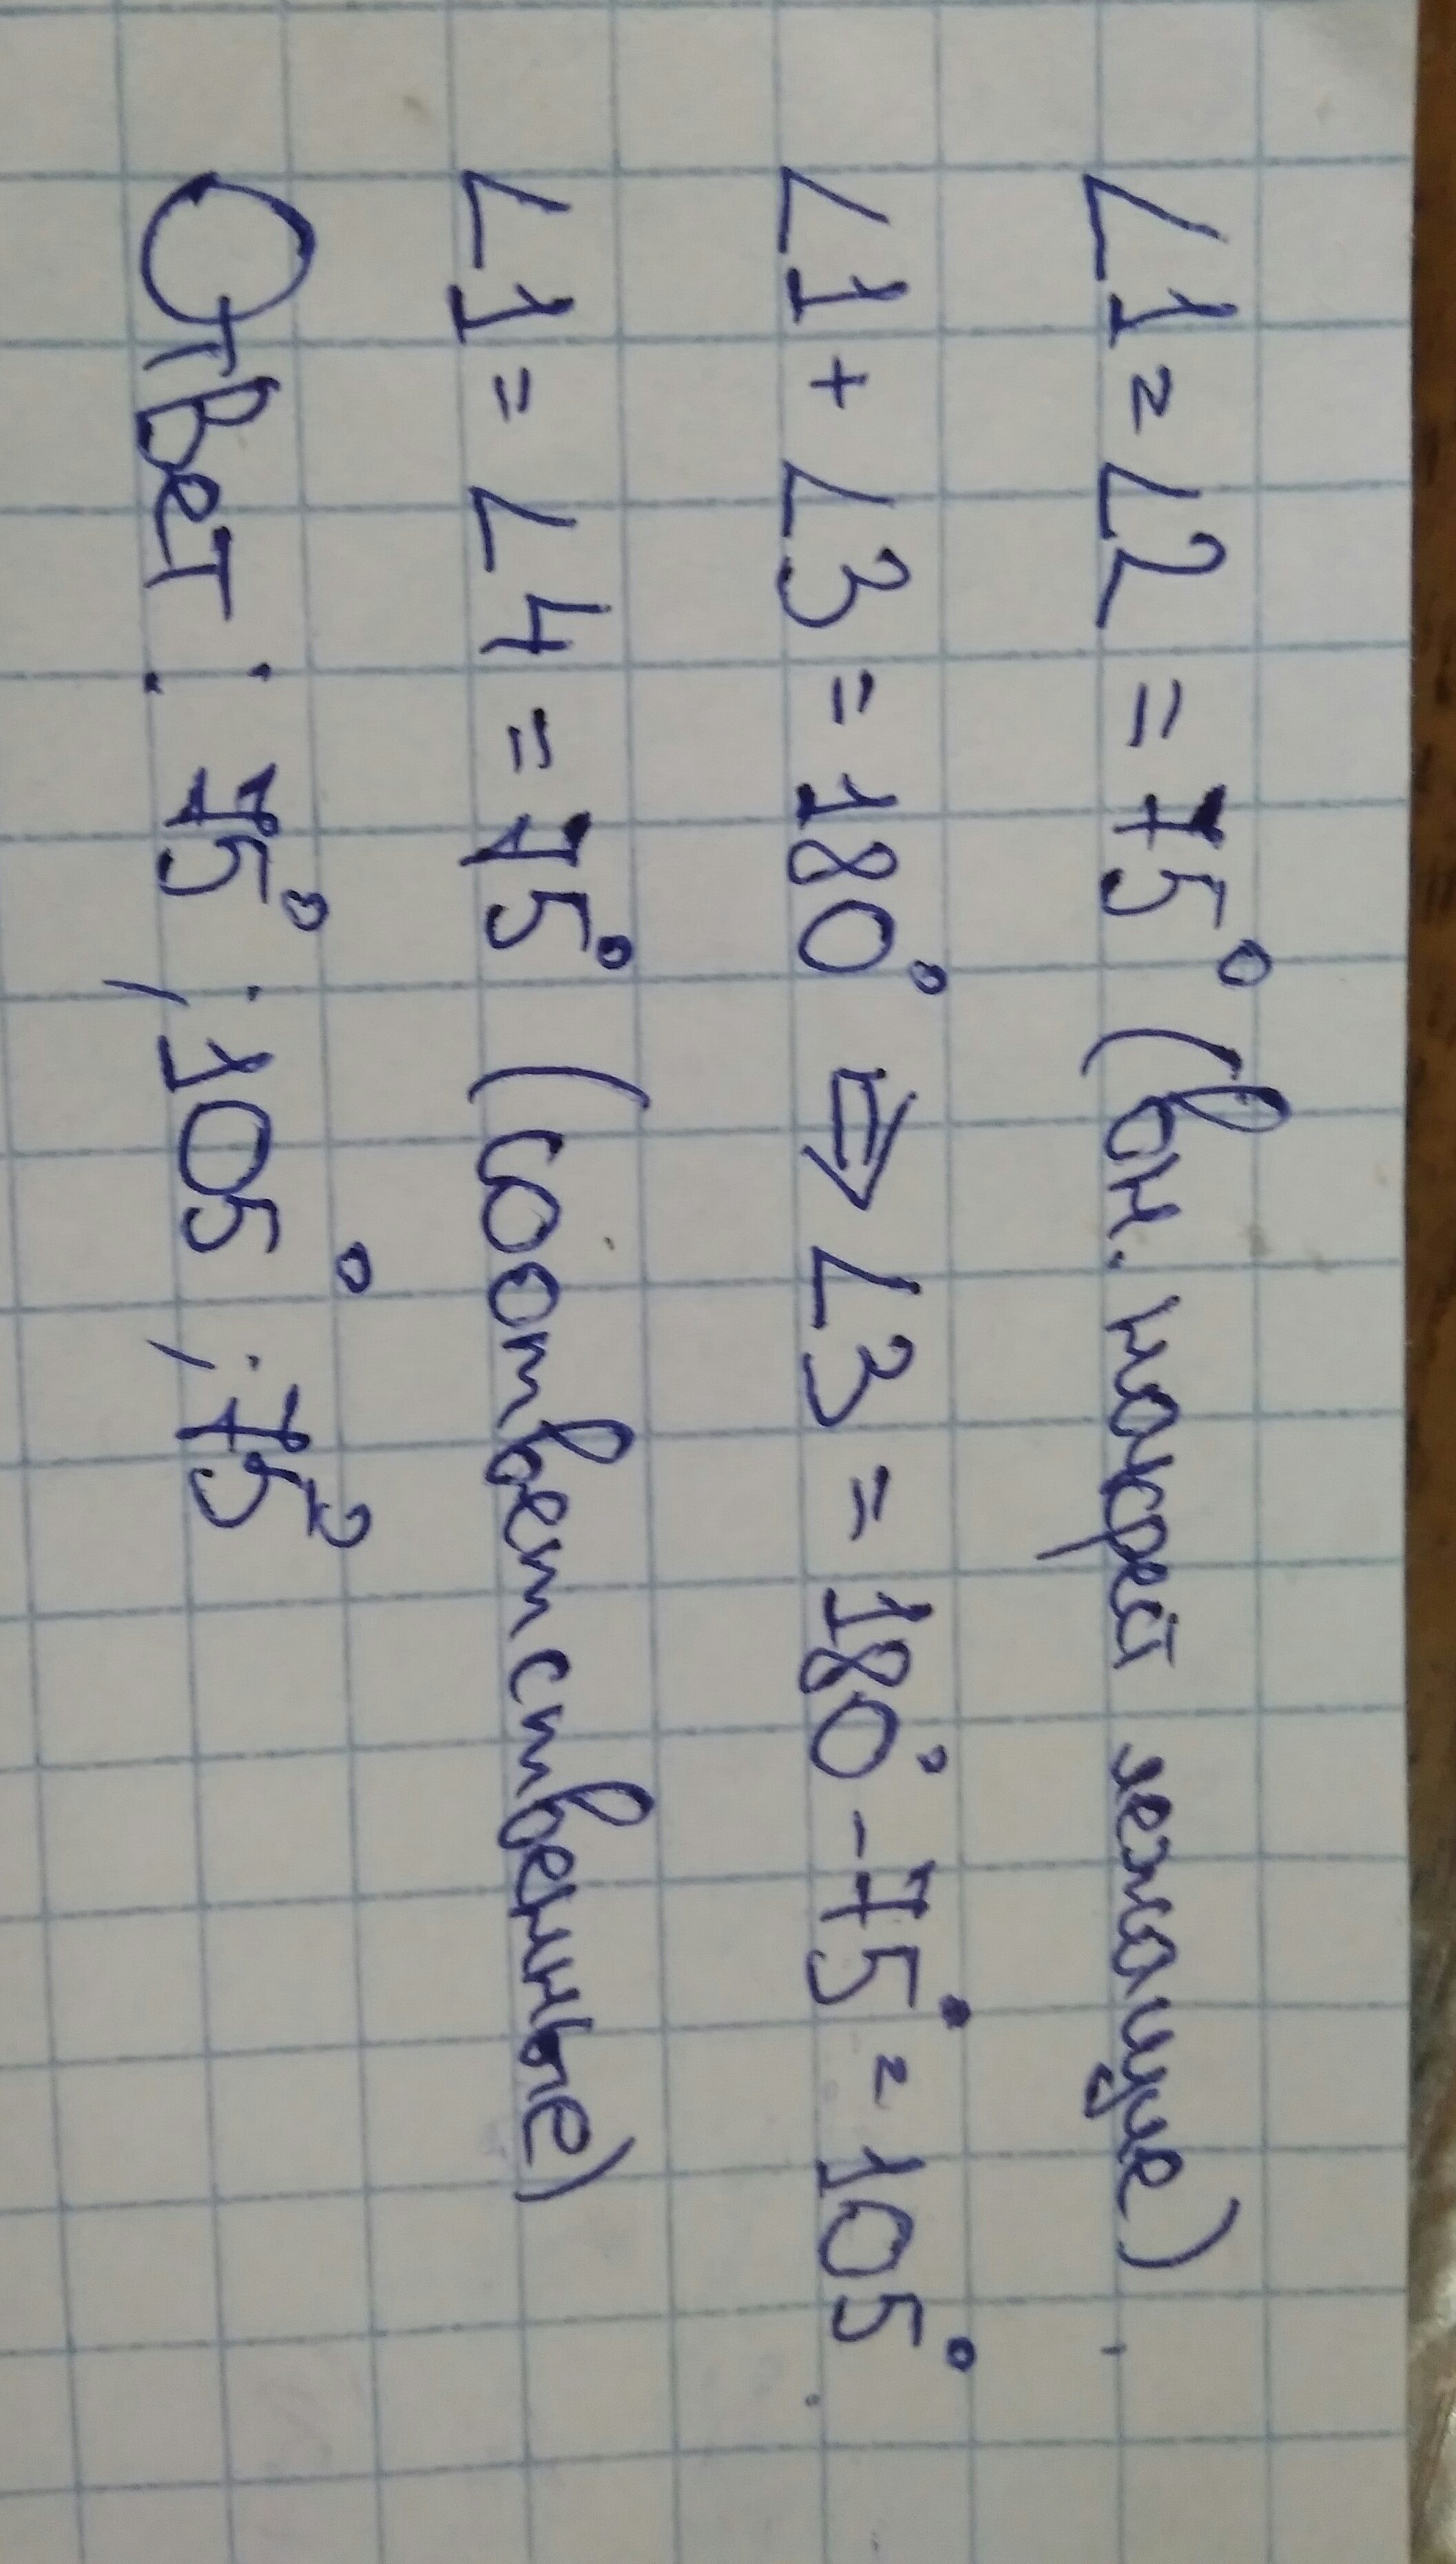 ∠1 = ∠2 = 75° (вн. накрей лежащие).
∠1 + ∠3 = 180° ⇒ ∠3 = 180° - 75° = 105°.
∠1 = ∠4 = 75° (соответственные)
Ответ: 75°; 105°; 75°